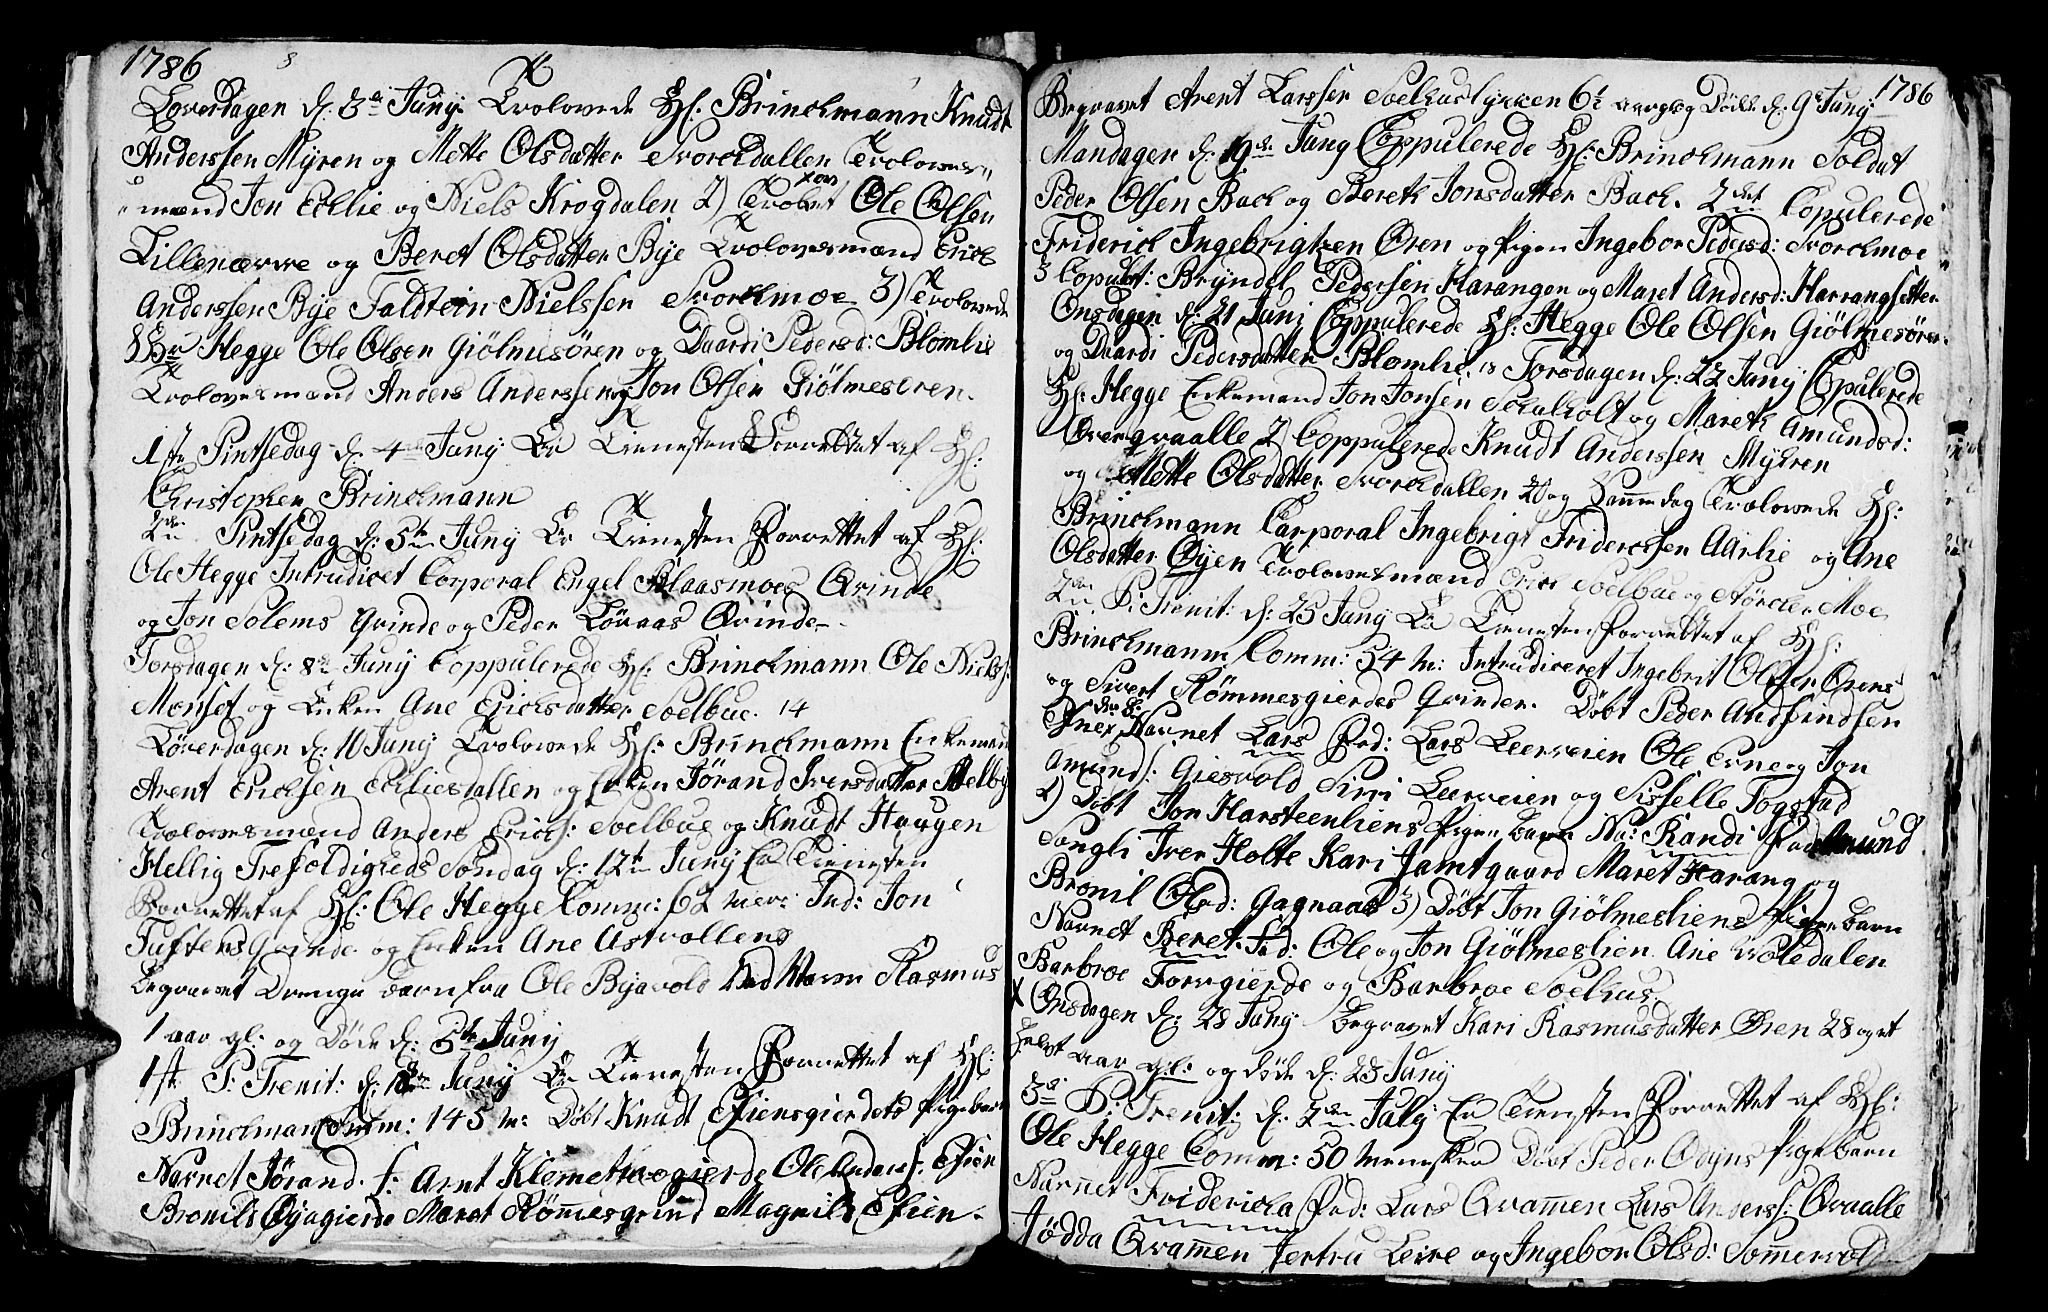 1786
Løverdagen d. 3de Juny Trolovede Hl: Brinchmann Knudt
Anderssen Myren og Mette Olsdatter Svorchdallen Troloves-
mænd Jon Echlie og Niels Krogdalen 2) Trolovet Ole Olsen
Lillenærre og Beret Olsdatter Bye Trolovesmænd Erich
Anderssen Bye Faldtein Nielssen Svorchmoe 3) Trolovede
Hr Hegge Ole Olsen Giölmesören og Duardi Pedersd: Blomlie
Trolovesmænd Anders Anderssen og Jon Olsen Giölmesøren.
1ste Pintsedag d. 4de Juny Er Tienesten Forrettet af Hl:
Christopher Brinchmann
2den Pintsedag d: 5te Juny Er Tienesten Forrettet af Hl:
Ole Hegge Intrudicet Corporal Engel Klaasmoes Qvinde
og Jon Solems Qvinde og Peder Löraas Qvinde
Torsdagen d: 8de Juny Coppulerede Hl: Brinchmann Ole Niels:
Monset og Enken Ane Erichsdatter Solbue. 14
Løverdagen d: 10 Juny Trolovede Hl: Brinchmann Enkemand
Arent Erichsen Echliesdallen og Enken Jørand Iversdatter Melby
Trolovesmænd Anders Erichs: Solbue og Knudt Haugen
Hellig Trefoldigheds Søndag d: 12te Juny Er Tienesten
Forrettet af Hl: Ole Hegge Comm: 62 men: Ind: Jon
Tuftens Qvinde og Enken Ane Astvollens
Begravet Drenge barn fra Ole Byavold Ved Navn Rasmus
1 aar gl: og Døde d: 5te Juny
1ste S: Trenit: d: 18de Juny Er Tienesten Forrettet af Hl:
Brinchman Comm: 145 m: Døbt Knudt Efiensgierdets Pigebarn
Navnet Jørand. f: Arnt Klemetsvogierde Ole Anders: Efien
Bronild Øyagierde Maret Römesgrind Magnild Efien.
1786
Begravet Arent Larssen Solhuslykken 6t aar glog Døde d: 9de Juny
Mandagen d. 19de Juny Coppulerede Hl: Brinchmann Soldat
Peder Olsen Bach og Bereth Jonsdatter Bach. 2det Copulerede
Friderich Ingebrigtsen Øren og Pigen Ingebor Pedersd: Svorchmoe
3 Copulet: Bryndel Pedersen Harangen og Maret Andersd: Harrangsetter
Onsdagen d: 21 Juni Coppulerede Hl: Hegge Ole Olsen Giölmesören
og Duardi Pedersdatter Blomlie, Torsdagen d: 22 Juny Copulerede
Hl: Hegge Enkemand Jon Jonsen Schalholt og Mareth Amundsd:
Overqvaalle 2) Coppulerede Knudt Anderssen Myhren
og Mette Olsdatter Svorchdallen og Samme dag Trolovede Hl:
Brinchmann Corporal Ingebrigt Friderchsen Aarlie og Ane
Olsdatter Øyen Trolovesmænd Erich Solbue og Størcher Moe
2den S: Trenit: d: 25 Juny Er Tienesten Forrettet af Hl:
Brinchmann Comm: 54 m: Intrudiceret Ingebrit Olssen Ørens
og Sivert Römmesgierdes Qvinder. Døbt Peder Andfindsen
Navnet Lars Fad: Lars Leerveien Ole Erne og Jon
Amunds: Giesvold Siri Leerveien og Sisselle Togstad
2) Døbt Jon Harsteenhiens Pigen barn Na: Randi Fad Amund
Songli Iver Holte Kari Jamtgaard Maret Harang og
Bronil Olsd: Gagnaas 3) Døbt Jon Giölmeshiens Pige barn
Navnet Beret. Fad: Ole og Jon Giölmeshien Ane Woledalen
Barbroe Forvgierde og Barbroe Solhus.
X Onsdagen d: 28 Juny Begravet Kari Rasmusdatter Øren 28 og et
halvt aar gl: og døde d: 23 Juny
3de S: Trenit: d: 2den July Er Tienesten Forrettet af Hl:
Ole Hegge Comm: 50 Mennesker Døbt Peder Odyns Pigebarn
Navnet Fridericha Fad: Lars Qvamen Lars Anderss: Qvaalle
Jödda Qvamen Jertru Leire og Ingebor Olsd: Somervold